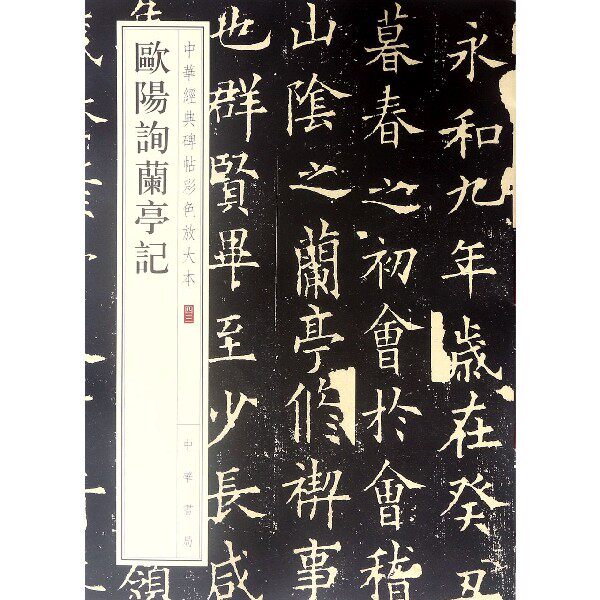 歐陽詢蘭亭記
中華經典碑帖彩色放大本
四三
中華書局
永和九年歲在癸丑
暮春之初會於會稽
山陰之蘭亭修禊事
也群賢畢至少長咸
集
領